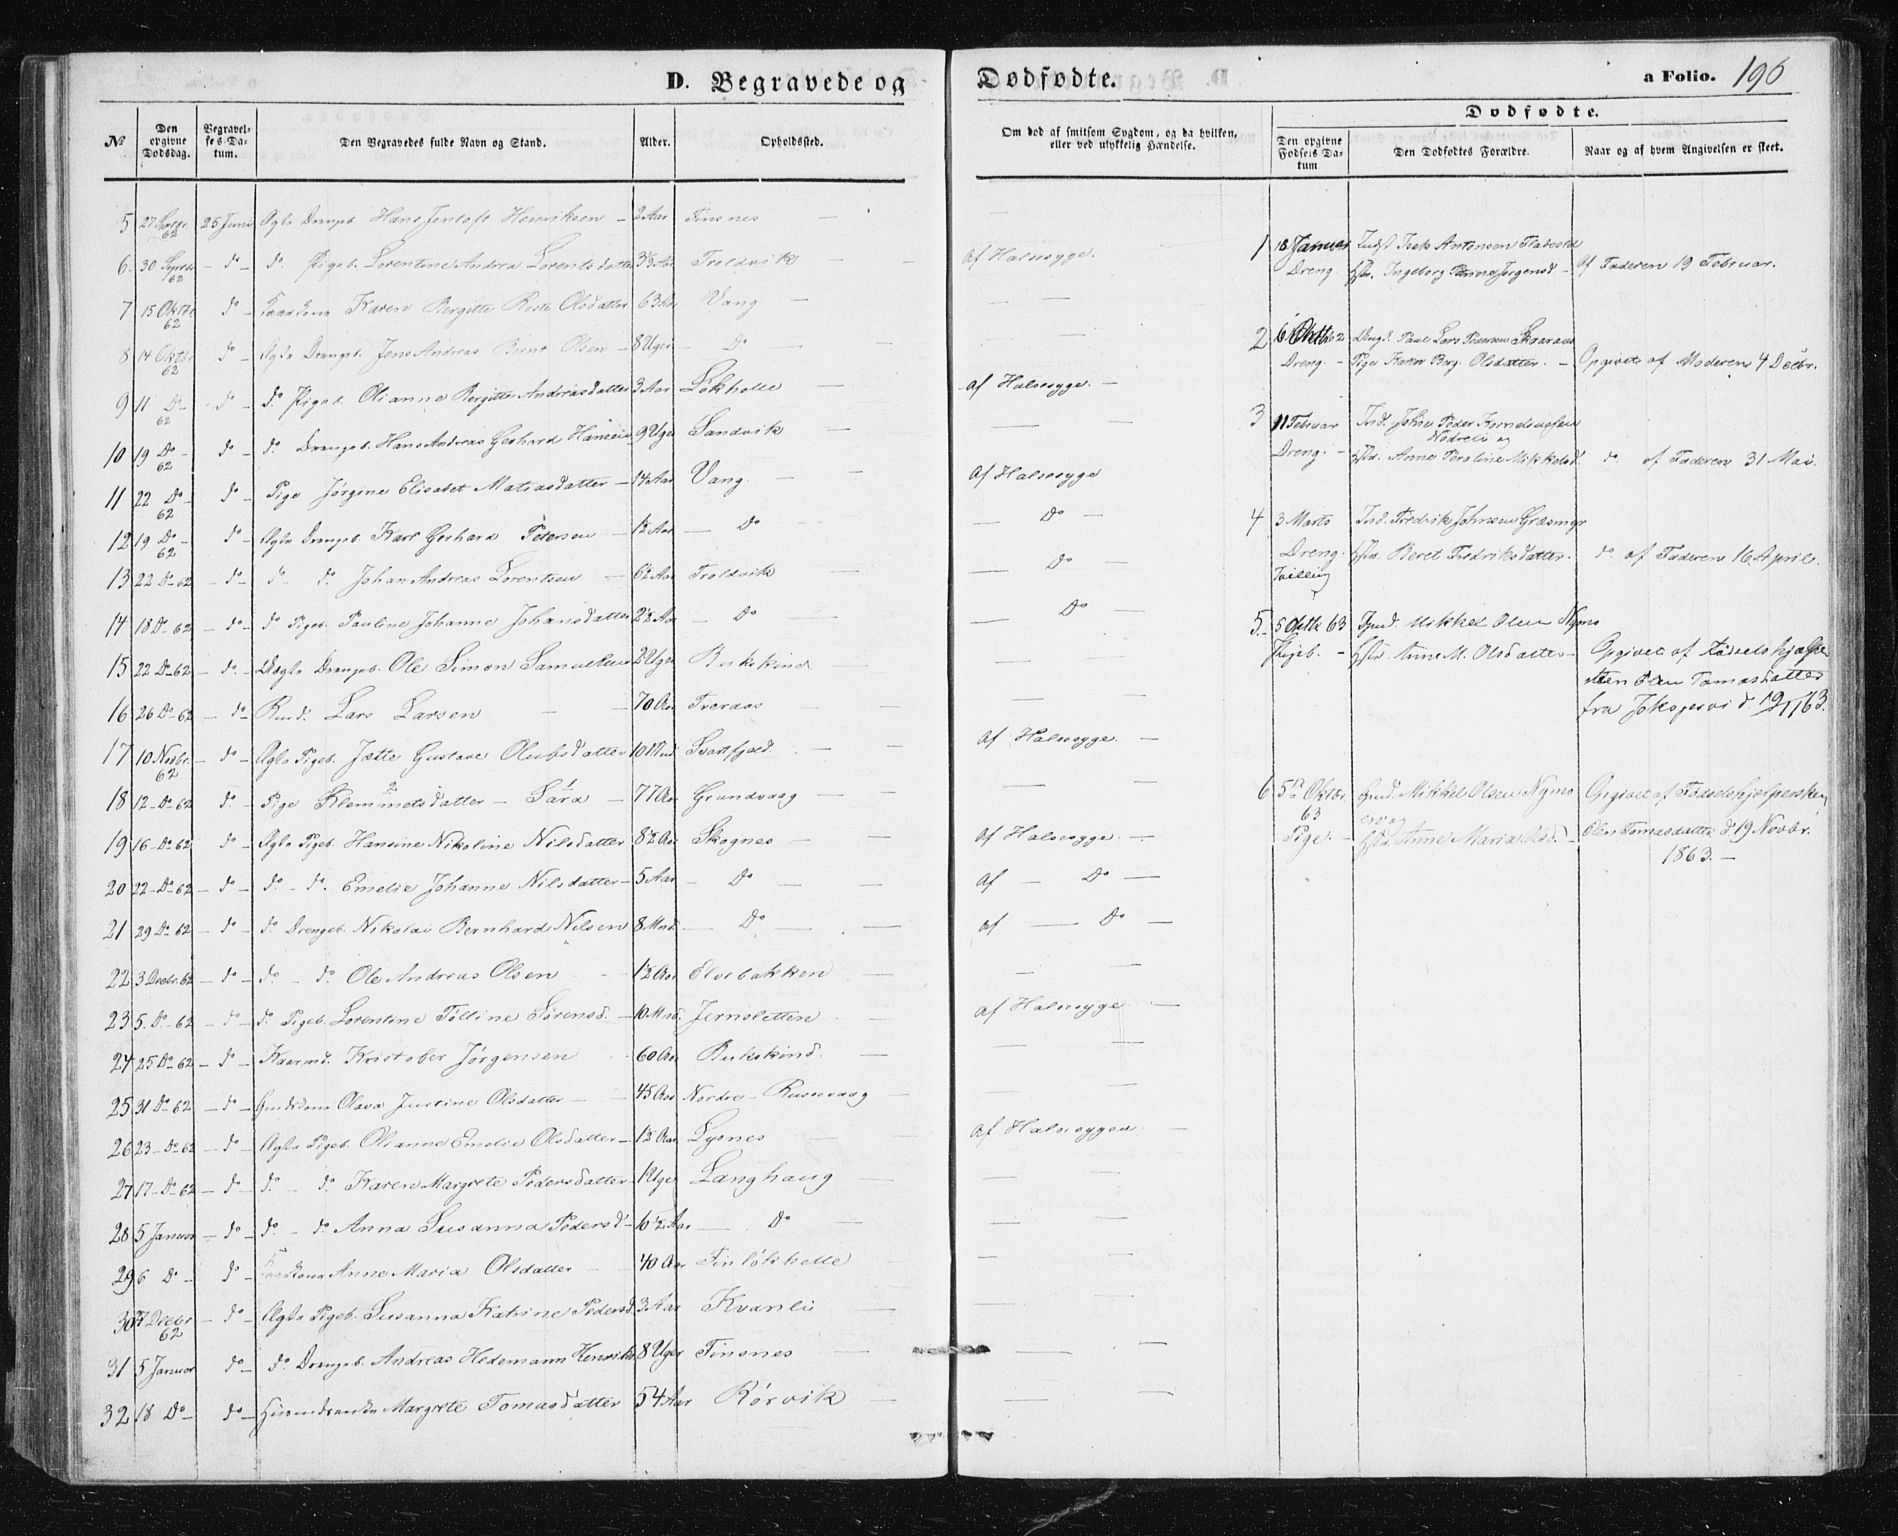 D. Begravede og Dødfødte.
a Folio. 196
Dødfødte.
No
Den opgivne Dødsdag.
Begravelses-Datum.
Den Begravedes fulde Navn og Stand.
Alder.
Opholdssted.
Om død af smitsom Sygdom, og da hvilken, eller ved ulykkelig Hændelse.
Den opgivne Fødsels Datum
Den Dødfødtes Forældre.
Naar og af hvem Angivelsen er skeet.
5 27 Septbr. 62 25 Juni Ægte Drengeb. Hans Jentoft Henriksen — 2 Aar Finsnes — —
6 30 Septbr 62 — do — do. Pigeb. Lorentine Andrea Lorentsdatter 3½ Aar Troldvik — af Halssyge.
7 15 Oktbr 62 do — Kaarkone Karen Bergitte Olsdatter 63 Aar Vang — —
8 14 Oktbr 62 do — Ægte Drengeb. Jens Andreas Bernt Olsen — 8 Uger — Do — —
9 11 Do 62 — do — do Pigeb. Olianne Bergitte Andreasdatter 3 Aar Løkhelle — af Halssyge. —
10 19 Do 62 do — do Drengeb. Hans Andreas Gerhard Hansen 9 Uger Sandvik — —
11 22 Do 62 do — Pige Jørgine Elisabet Matiasdatter — 14 Aar Vang — Af Halssyge
12 19 Do 62 do — Ægte Drengeb. Karl Gerhard Petersen — 1½ Aar — Do — — Do —
13 22 Do 62 — do — do — do Johan Andreas Lorentsen — 6½ Aar Troldvik — — Do —
14 18 Do 62 — do — do Pigeb. Pauline Johanne Johansdatter 2½ Aar — Do — — Do —
15 22 Do 62 — do. Uægte Drengeb. Ole Simon Samuelsen 2 Uger Bukskind — —
16 26 Do 62 — do — Rmd. Lars Larsen — — 70 Aar Træraas — —
17 10 Novbr. 62 — do — Ægte Pigeb. Jætte Gustave Olufsdatter 10 Mnd. Svartfjeld. — af Halssyge. —
18 12 Do 62 do. — Pige Klemmetsdatter — Sara — 77 Aar Grundvaag — —
19 16 Do 62 — do — Ægte Pigeb. Hansine Nikoline Nilsdatter 8½ Aar Skognes — af Halssyge. —
20 22 Do 62 — do — do — do. Emelie Johanne Nilsdatter — 5 Aar — Do — af — Do —
21 29 Do 62 — do — do Drengeb. Nikolai Bernhard Nilsen 8 Mnd. — Do — af — Do —
22 3 Decbr. 62 — do — do — do. Ole Andreas Olsen — 1½ Aar Elvebakken — —
23 5. Do 62 — do — do. Pigeb. Lorentine Tolline Sørensd. — 10 Mnd. Jernsletten — af Halssyge —
24 25 Do 62 — do — Kaarmd. Kristofer Jørgensen 60 Aar Bukskind. — —
25 31 Do 62 — do — Gmdskone Olava Justine Olsdatter — 45 Aar Nordre-Russevaag — —
26 23 Do 62 — do — Ægte Pigeb. Olianne Emelie Olsdatter — 1½ Aar Lysnes — af Halssygen —
27 17 Do 62 — do — do. — do. Karen Margrete Pedersdatter 1 Uger Langhaug — —
28 5 Januar — do — do — do Anna Susanna Pedersd — 6½ Aar — Do — —
29 6 Do — do — Anne Maria Olsdatter — 40 Aar Finløkhelle — —
30 Decbr 62 — do — Ægte Pigeb. Susanna Katrine Pedersd 3 Aar Kvanli — —
31 5 Januar do — do Drengeb. Andreas Hedemann Henriks 8 Uger Finsnes — —
32 18 Do — do — Margrete Tomasdatter 54 Aar Rørvik — —
1 18 Januar Indst Isak Antonsen
Dreng Hstr. Ingeborg Jørgensd — Af Faderen 19 Februar.
2 6 Oktbr 62 Ungk. Paul Lars Pedersen
Dreng. — Pige Karen Berg. Olsdatter. — Opgivet af Moderen 4 Decbr.
3 11 Februar Ind. Johan Peder Korneliussen
Nedreli og
Dreng. — Hstr. Anne Peroline Mikkelsd. do af Faderen 31 Mai.
4 3 Marts Ind. Fredrik Johnsen Græsmyr
Dreng. Hstr. Beret Fredriksdatter. do. af Faderen 16 April.
Tvilling
5. 5 Oktb 63 Gmd. Mikkel Olsen Nymo
Pigeb. — Hstr. Anne M. Olsdatter — Opgivet af Fødselshjelper
Elen Tomasdatter
fra d. 19/11 63.
6 5te Oktbr. 63 Gmd. Mikkel Olsen Nymo Opgivet af Fødselshjelpersken
og
Pige. — Hstr. Anne Maria Olsd. — Elen Tomasdatter d. 19 Novbr.
1863. —